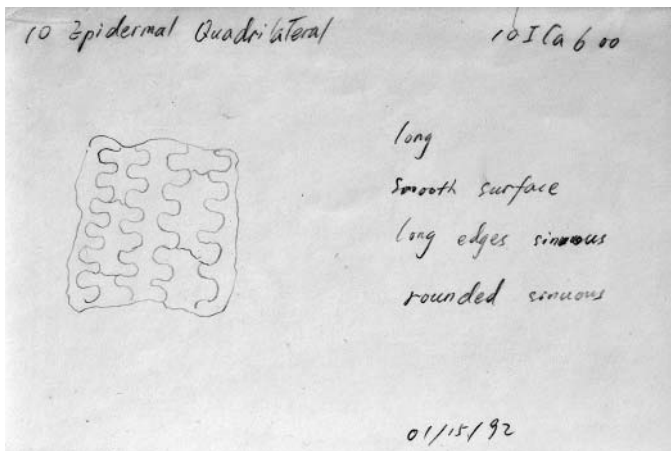 10 Epidermal Quadrilateral
10ICa600
long
smooth surface
long edges sinuous
rounded sinuous
01/15/92